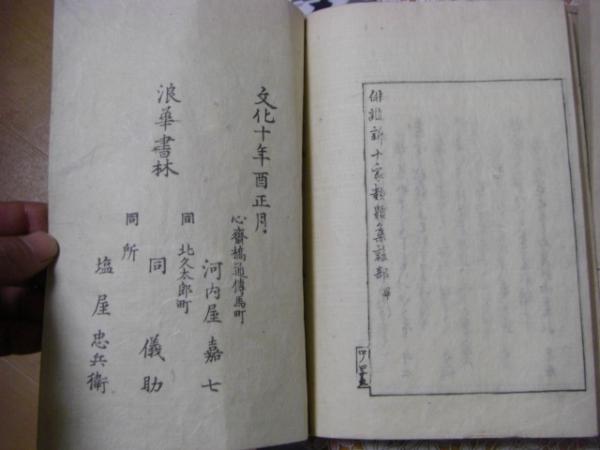 俳諧新十家類題集雑部畢
文化十年酉正月
浪華書林
心齋橋通傳馬町
河内屋嘉七
同北久太郎町
同儀助
同所
塩屋忠兵衛